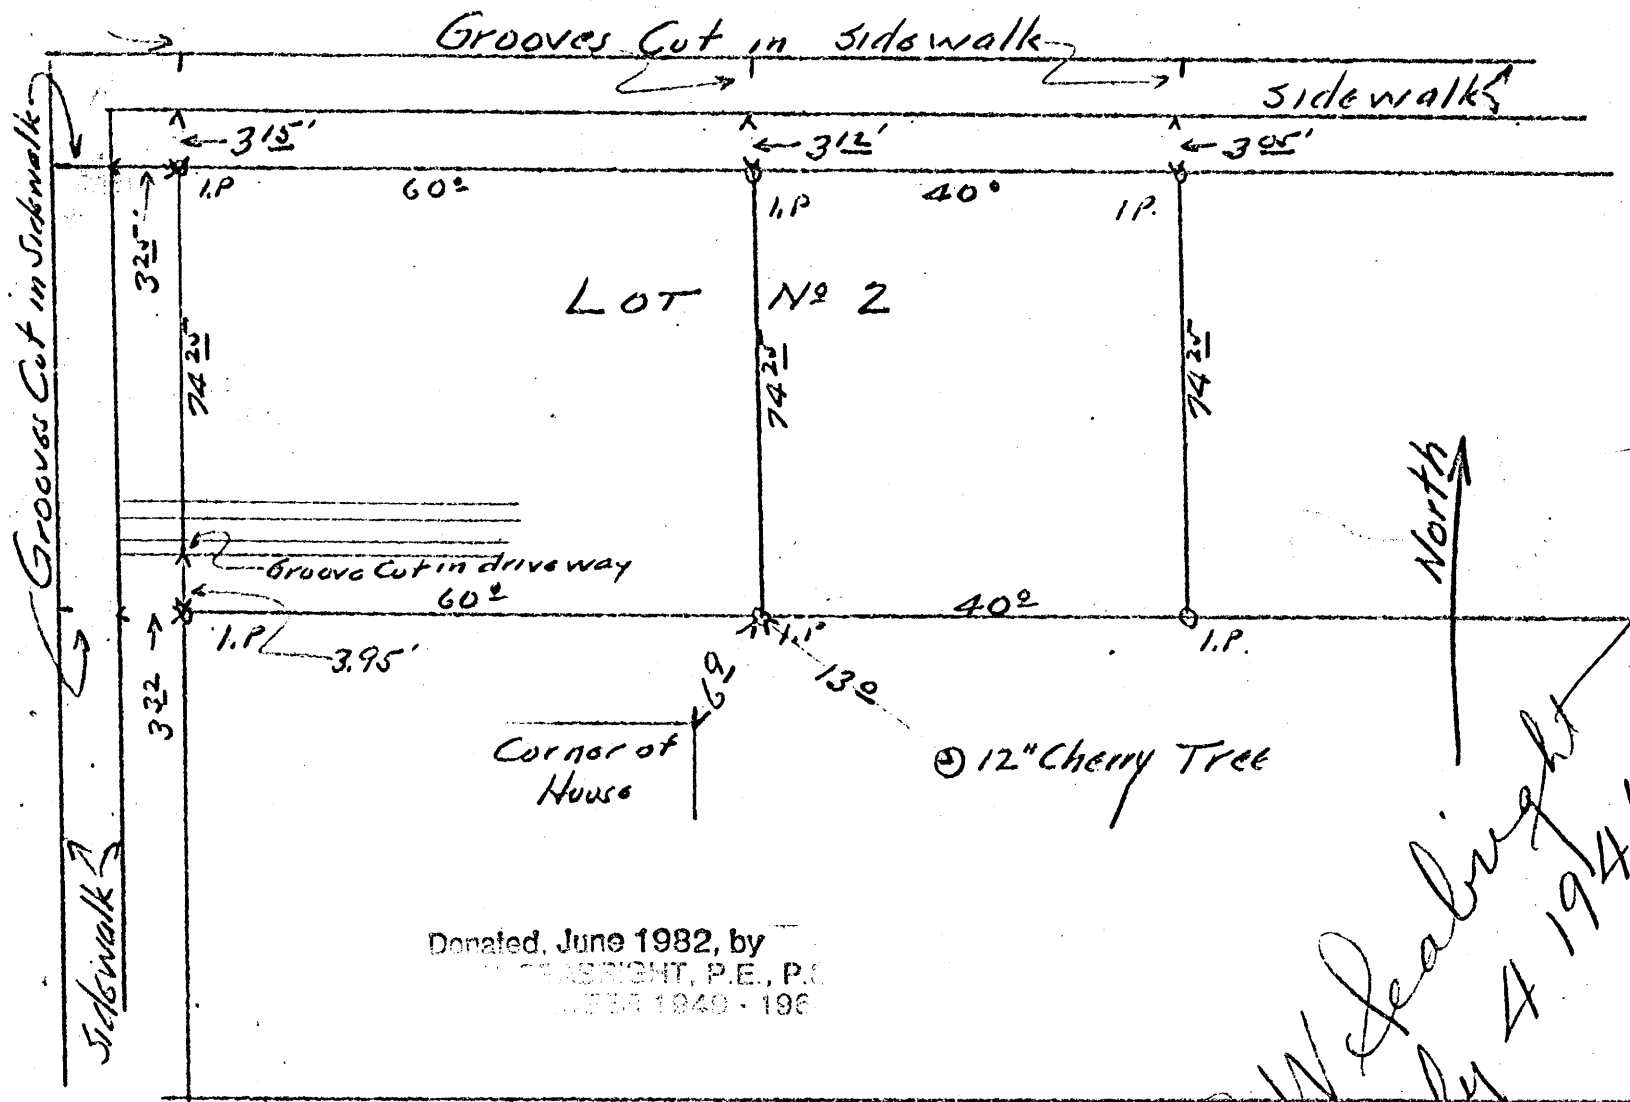 Grooves Cut in sidewalk
sidewalk
Grooves Cut in Sidewalk
3 15'
3 12'
3 05'
I.P
60º
I.P
40º
I.P.
3 25'
LOT Nº 2
74 25
74 25
74 25
North
Groove Cut in driveway
60º
40º
I.P.
3.95'
I.P
I.P.
3 32
6º
13º
Corner of
House
12" Cherry Tree
Sidewalk
Donated, June 1982, by
SEABRIGHT, P.E., P.S
1940 - 196
W Seabright
4 194